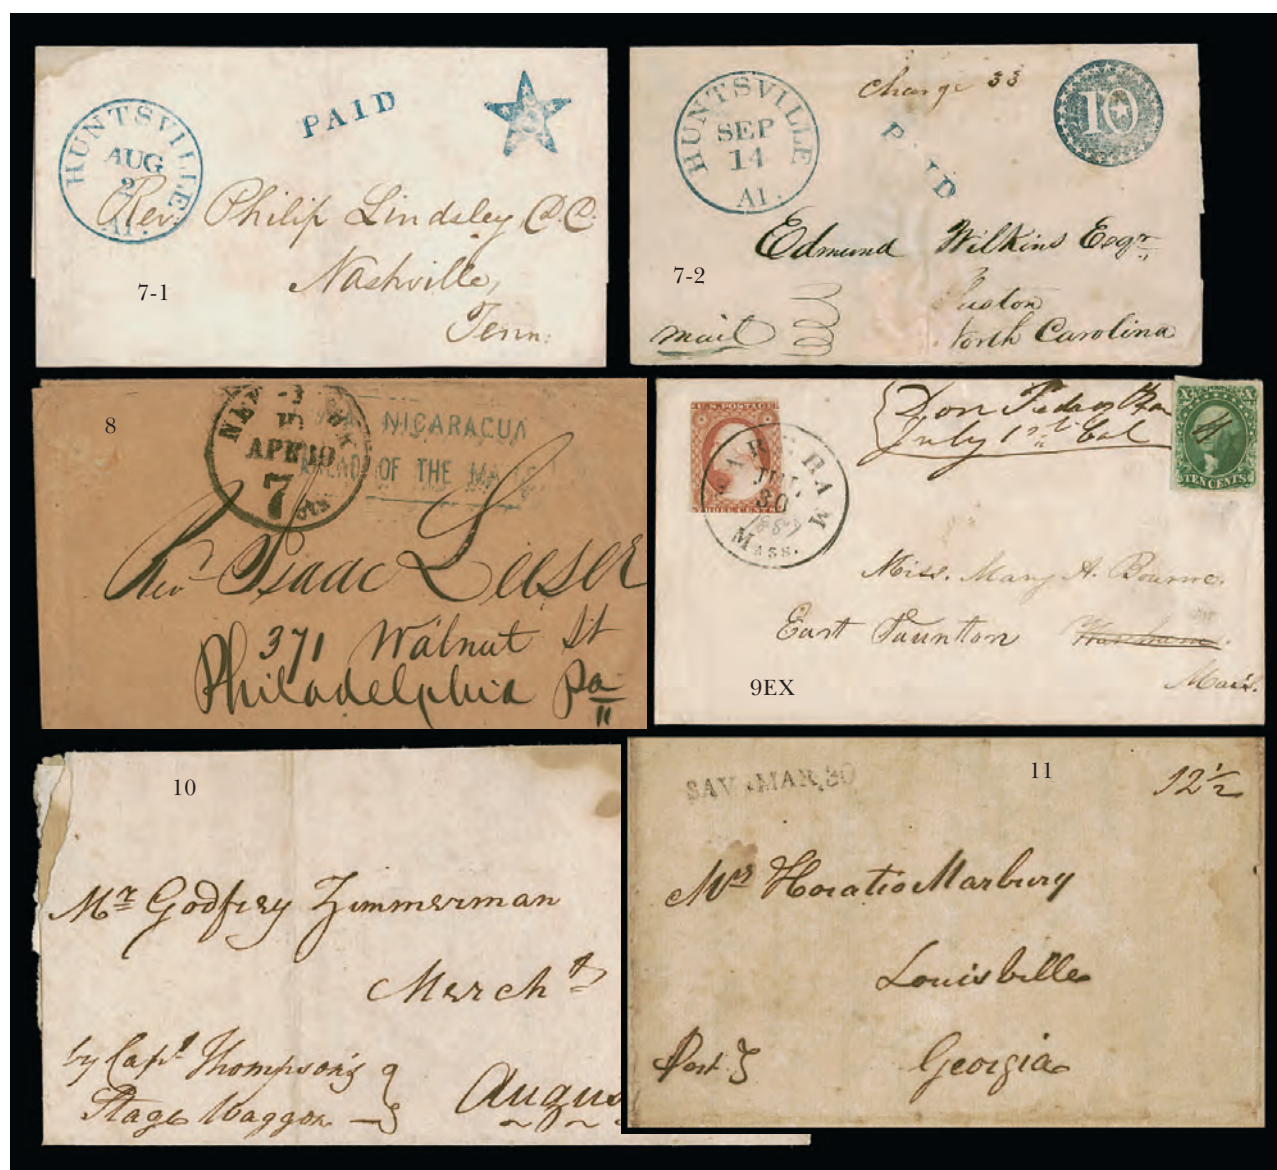 HUNTSVILLE
AUG
2
Al.
PAID
5
Rev. Philip Lindsley D.D.
Nashville,
Tenn:
7-1
HUNTSVILLE
SEP
14
Al.
charge 33
PAID
10
Edmund Wilkins Esqr
North Carolina
mail
7-2
8
NEW YORK
APR 10
7 cts
NICARAGUA
AHEAD OF THE MAILS
Rev Isaac Leeser
371 Walnut St
Philadelphia Pa
U.S. POSTAGE
THREE CENTS
WAREHAM
JUL
30
MASS.
July 1st Cal
X X
TEN CENTS
Miss. Mary A. Bourne.
East Taunton Wareham.
Mass.
9EX
10
Mr Godfrey Zimmerman
Mercht
by Capt Thompson's
Stage Waggon
Augus
11
SAV MAR 20
12½
Mr Horatio Marbury
Louisville
Georgia
Post